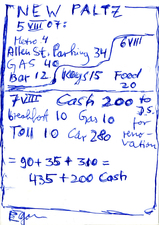 NEW PALTZ
5 VIII 07:
Metro 4
Allen St. Parking 34
GAS 40
Bar 12
Keys 15
6 VIII
Food 20
7 VIII
Cash 200 to
breakfast 10 Gas 10
Toll 10 Car 280
for reno-
vation
= 90 + 35 + 310 =
435 + 200 Cash